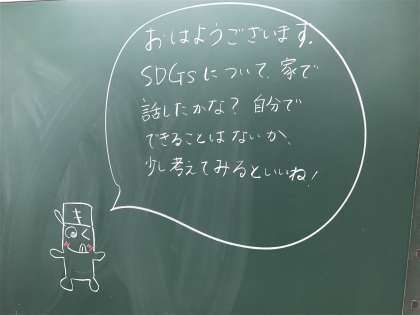 おはようございます.
SDGsについて、家で
話したかな？自分で
できることはないか、
少し考えてみるといいね！
き